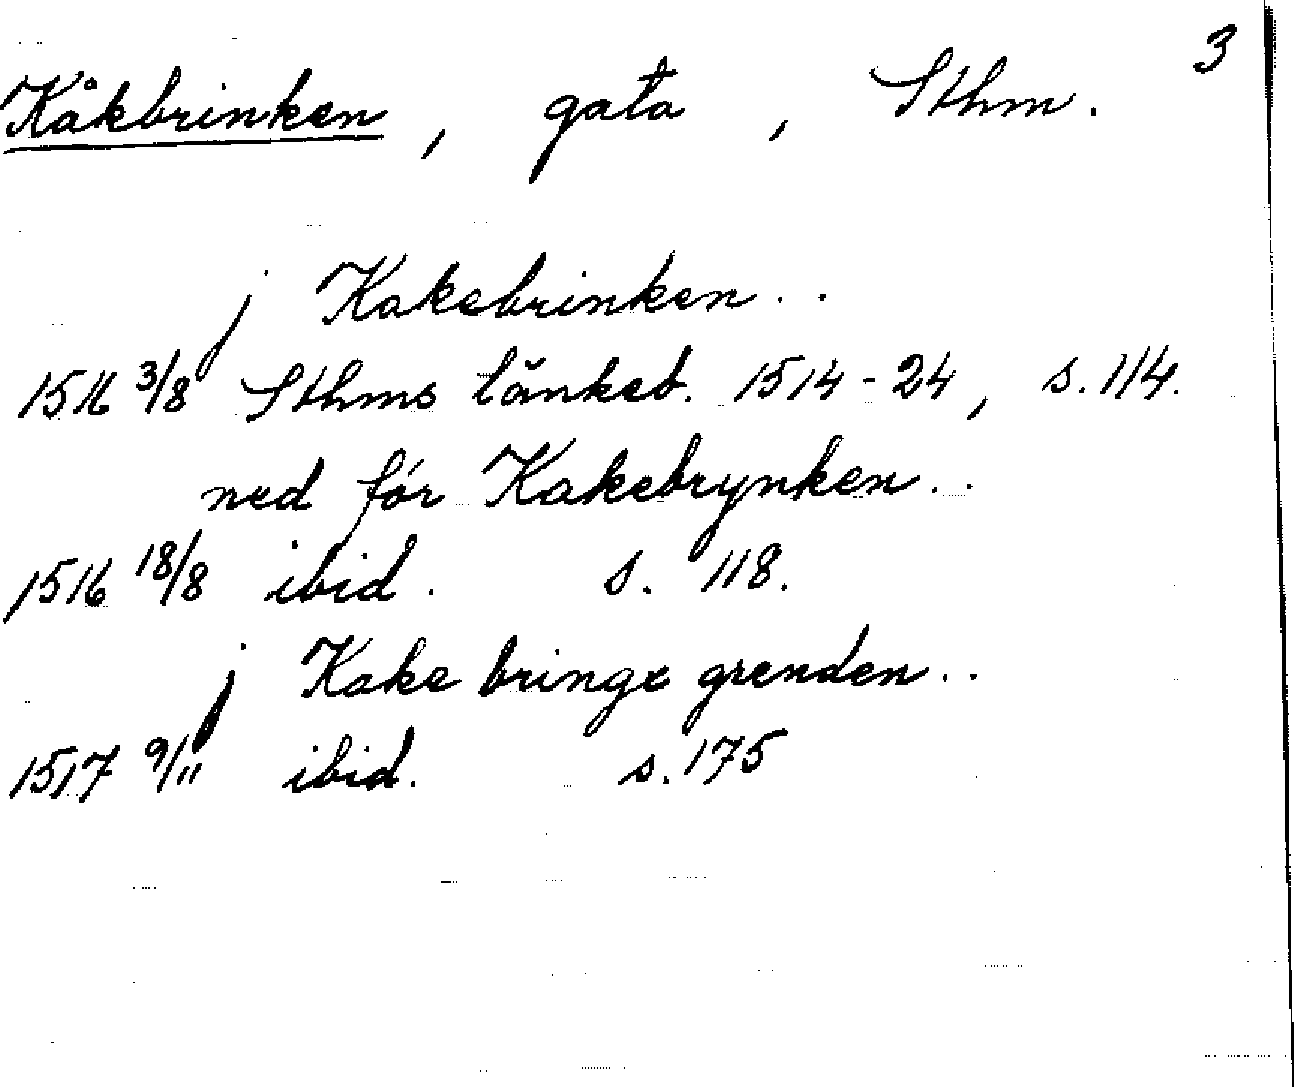 3
Kåkbrinken, gata, Sthm.
j Kakebrinken..
1516 3/8 Sthms tänkeb. 1514-24, s. 114.
ned för Kakebrynken..
1516 18/8 ibid. s. 118.
j Kake bringe grenden..
1517 9/11 ibid. s. 175